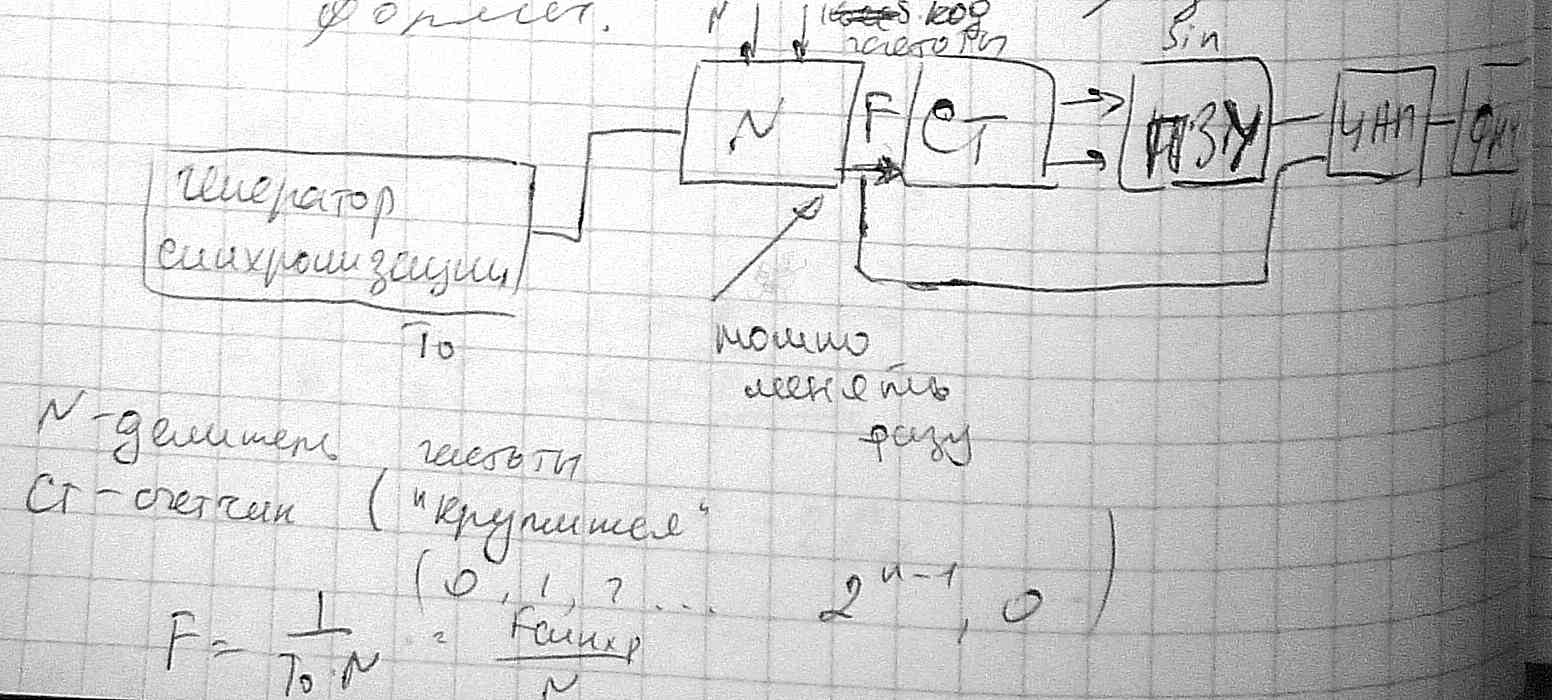 формы.
N код
частоты
sin
N F CT ПЗУ ЦАП ФНЧ
генератор
синхронизации
T0
можно
менять
фазу
N-делитель частоты
CT-счетчик ("крутится"
(0, 1, 2 ... 2^n-1, 0)
F = 1/(T0·N) = Fсинхр/N